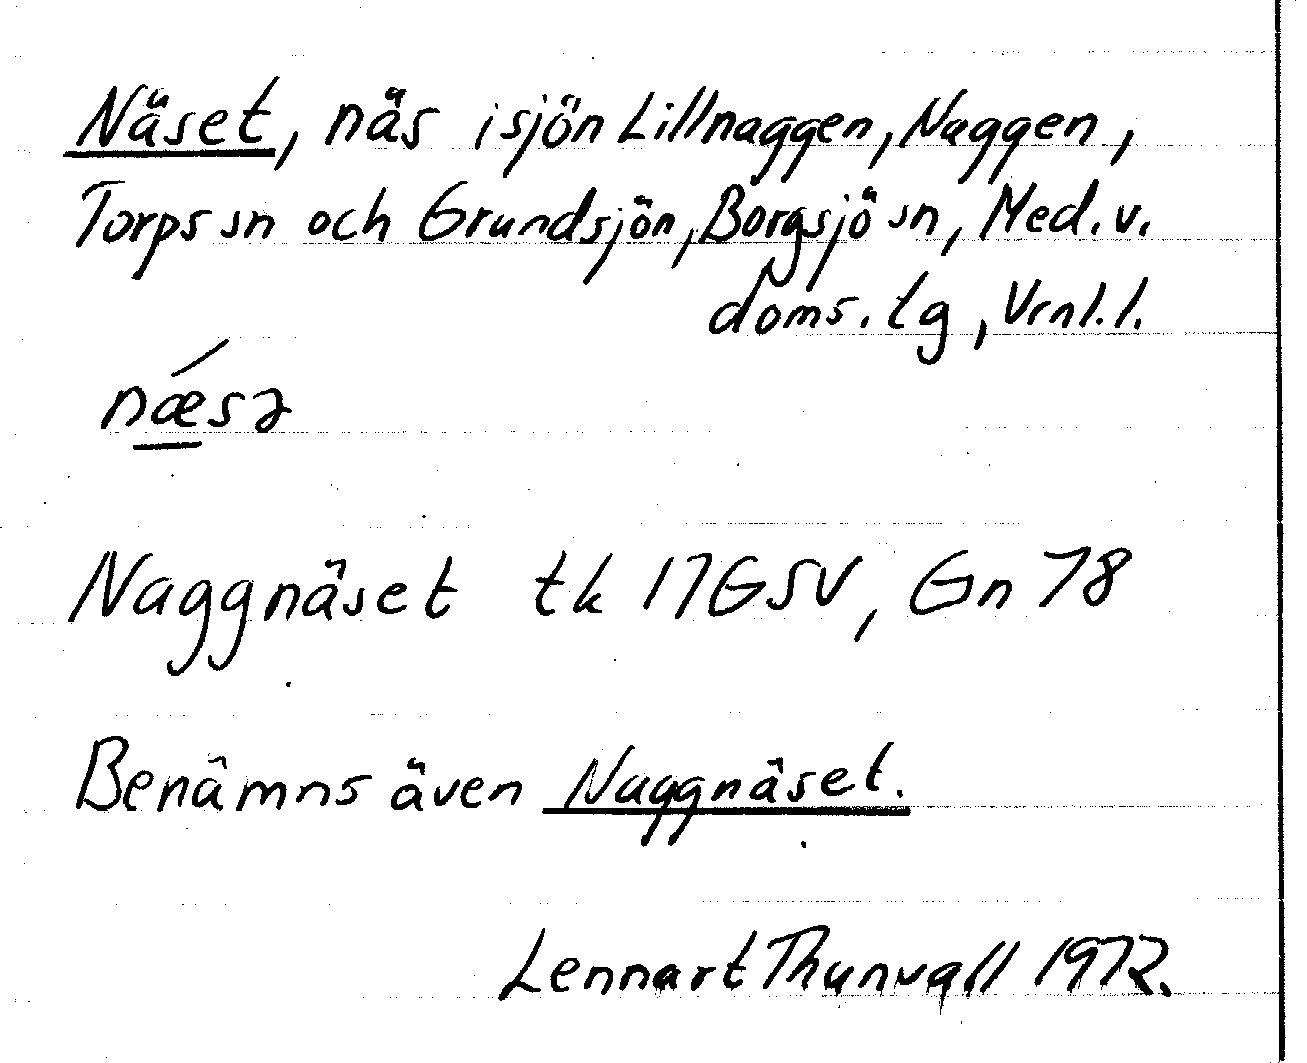 Näset, näs i sjön Lillnaggen, Naggen,
Torps sn och Grundsjön, Borgsjö sn, Med. v.
doms. tg, Vrnl. l.
nǽ̲sə
Naggnäset tk 17G SV, Gn 78
Benämns även Naggnäset.
Lennart Thunvall 1972.